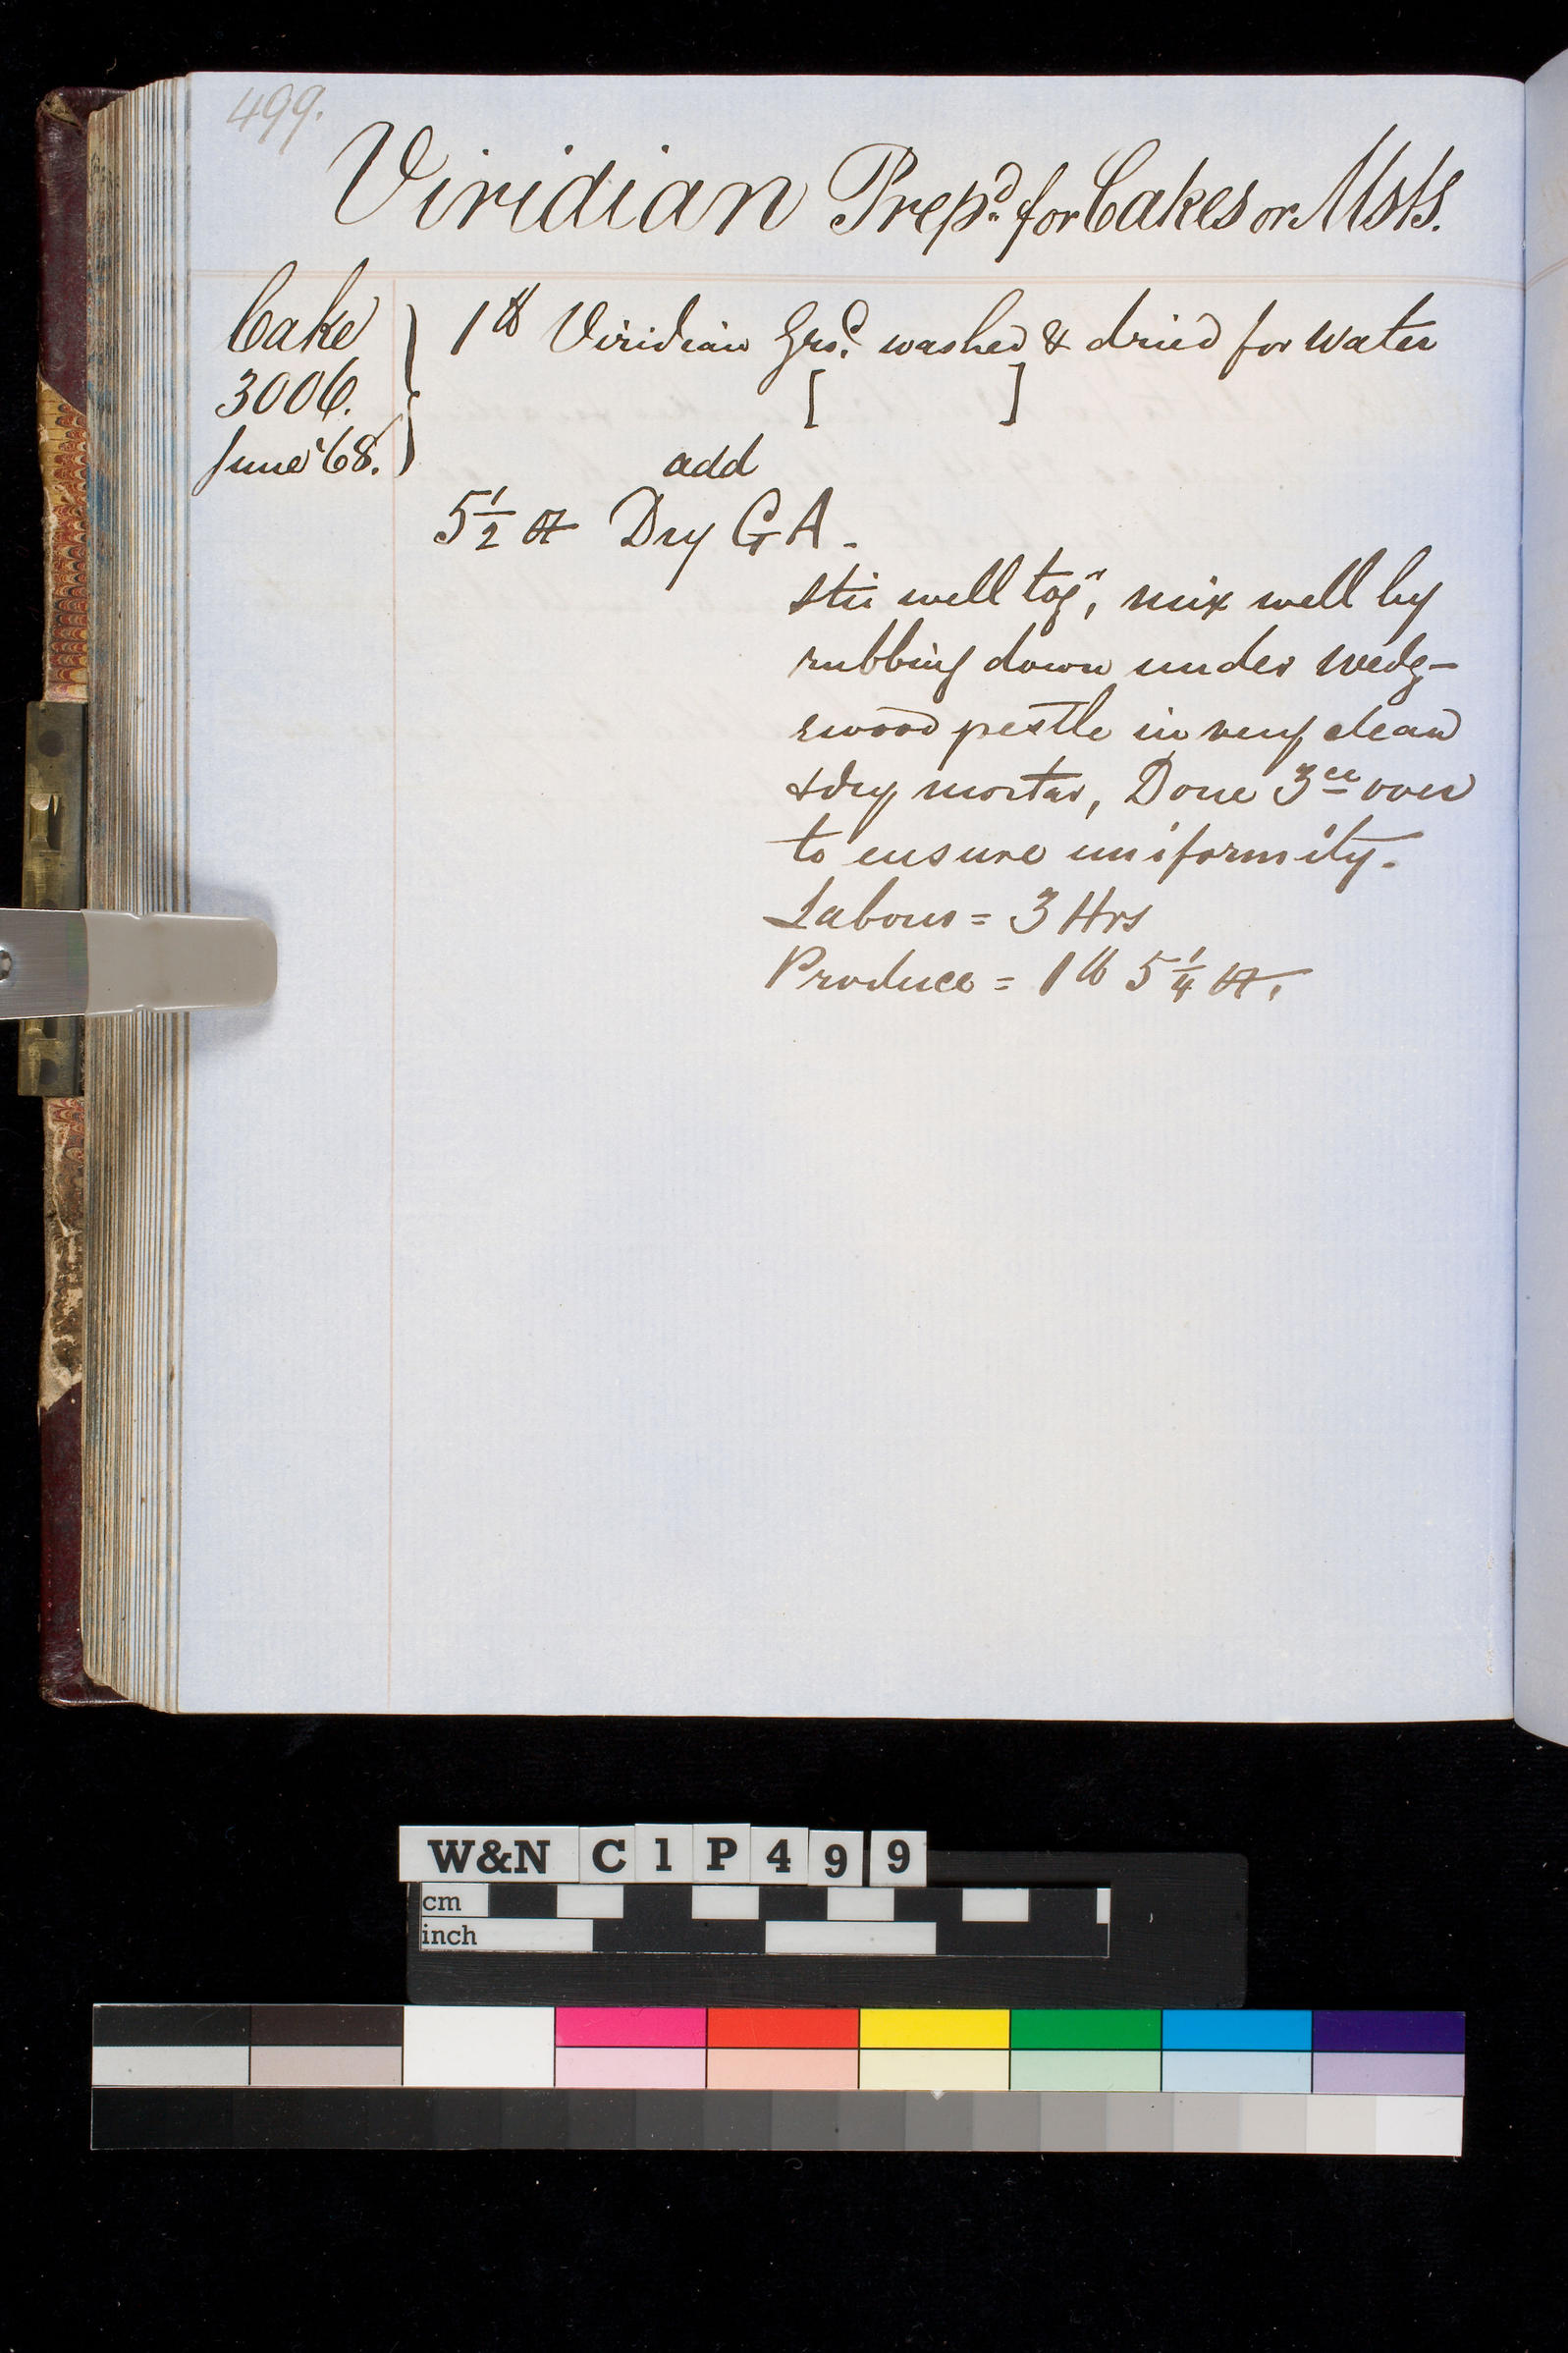 499.
Viridian Prepd. for Cakes or Msts.
Cake
3006.
June '68.
1 lb Viridian Grd. washed & dried for water
[ ]
add
5½ oz Dry G A.
stir well togr, mix well by
rubbing down under wedg-
ewood pestle in very clean
& dry mortar, Done 3ce over
to ensure uniformity.
Labour = 3 Hrs
Produce = 1 lb 5¼ oz.
W&N C1P499
cm
inch